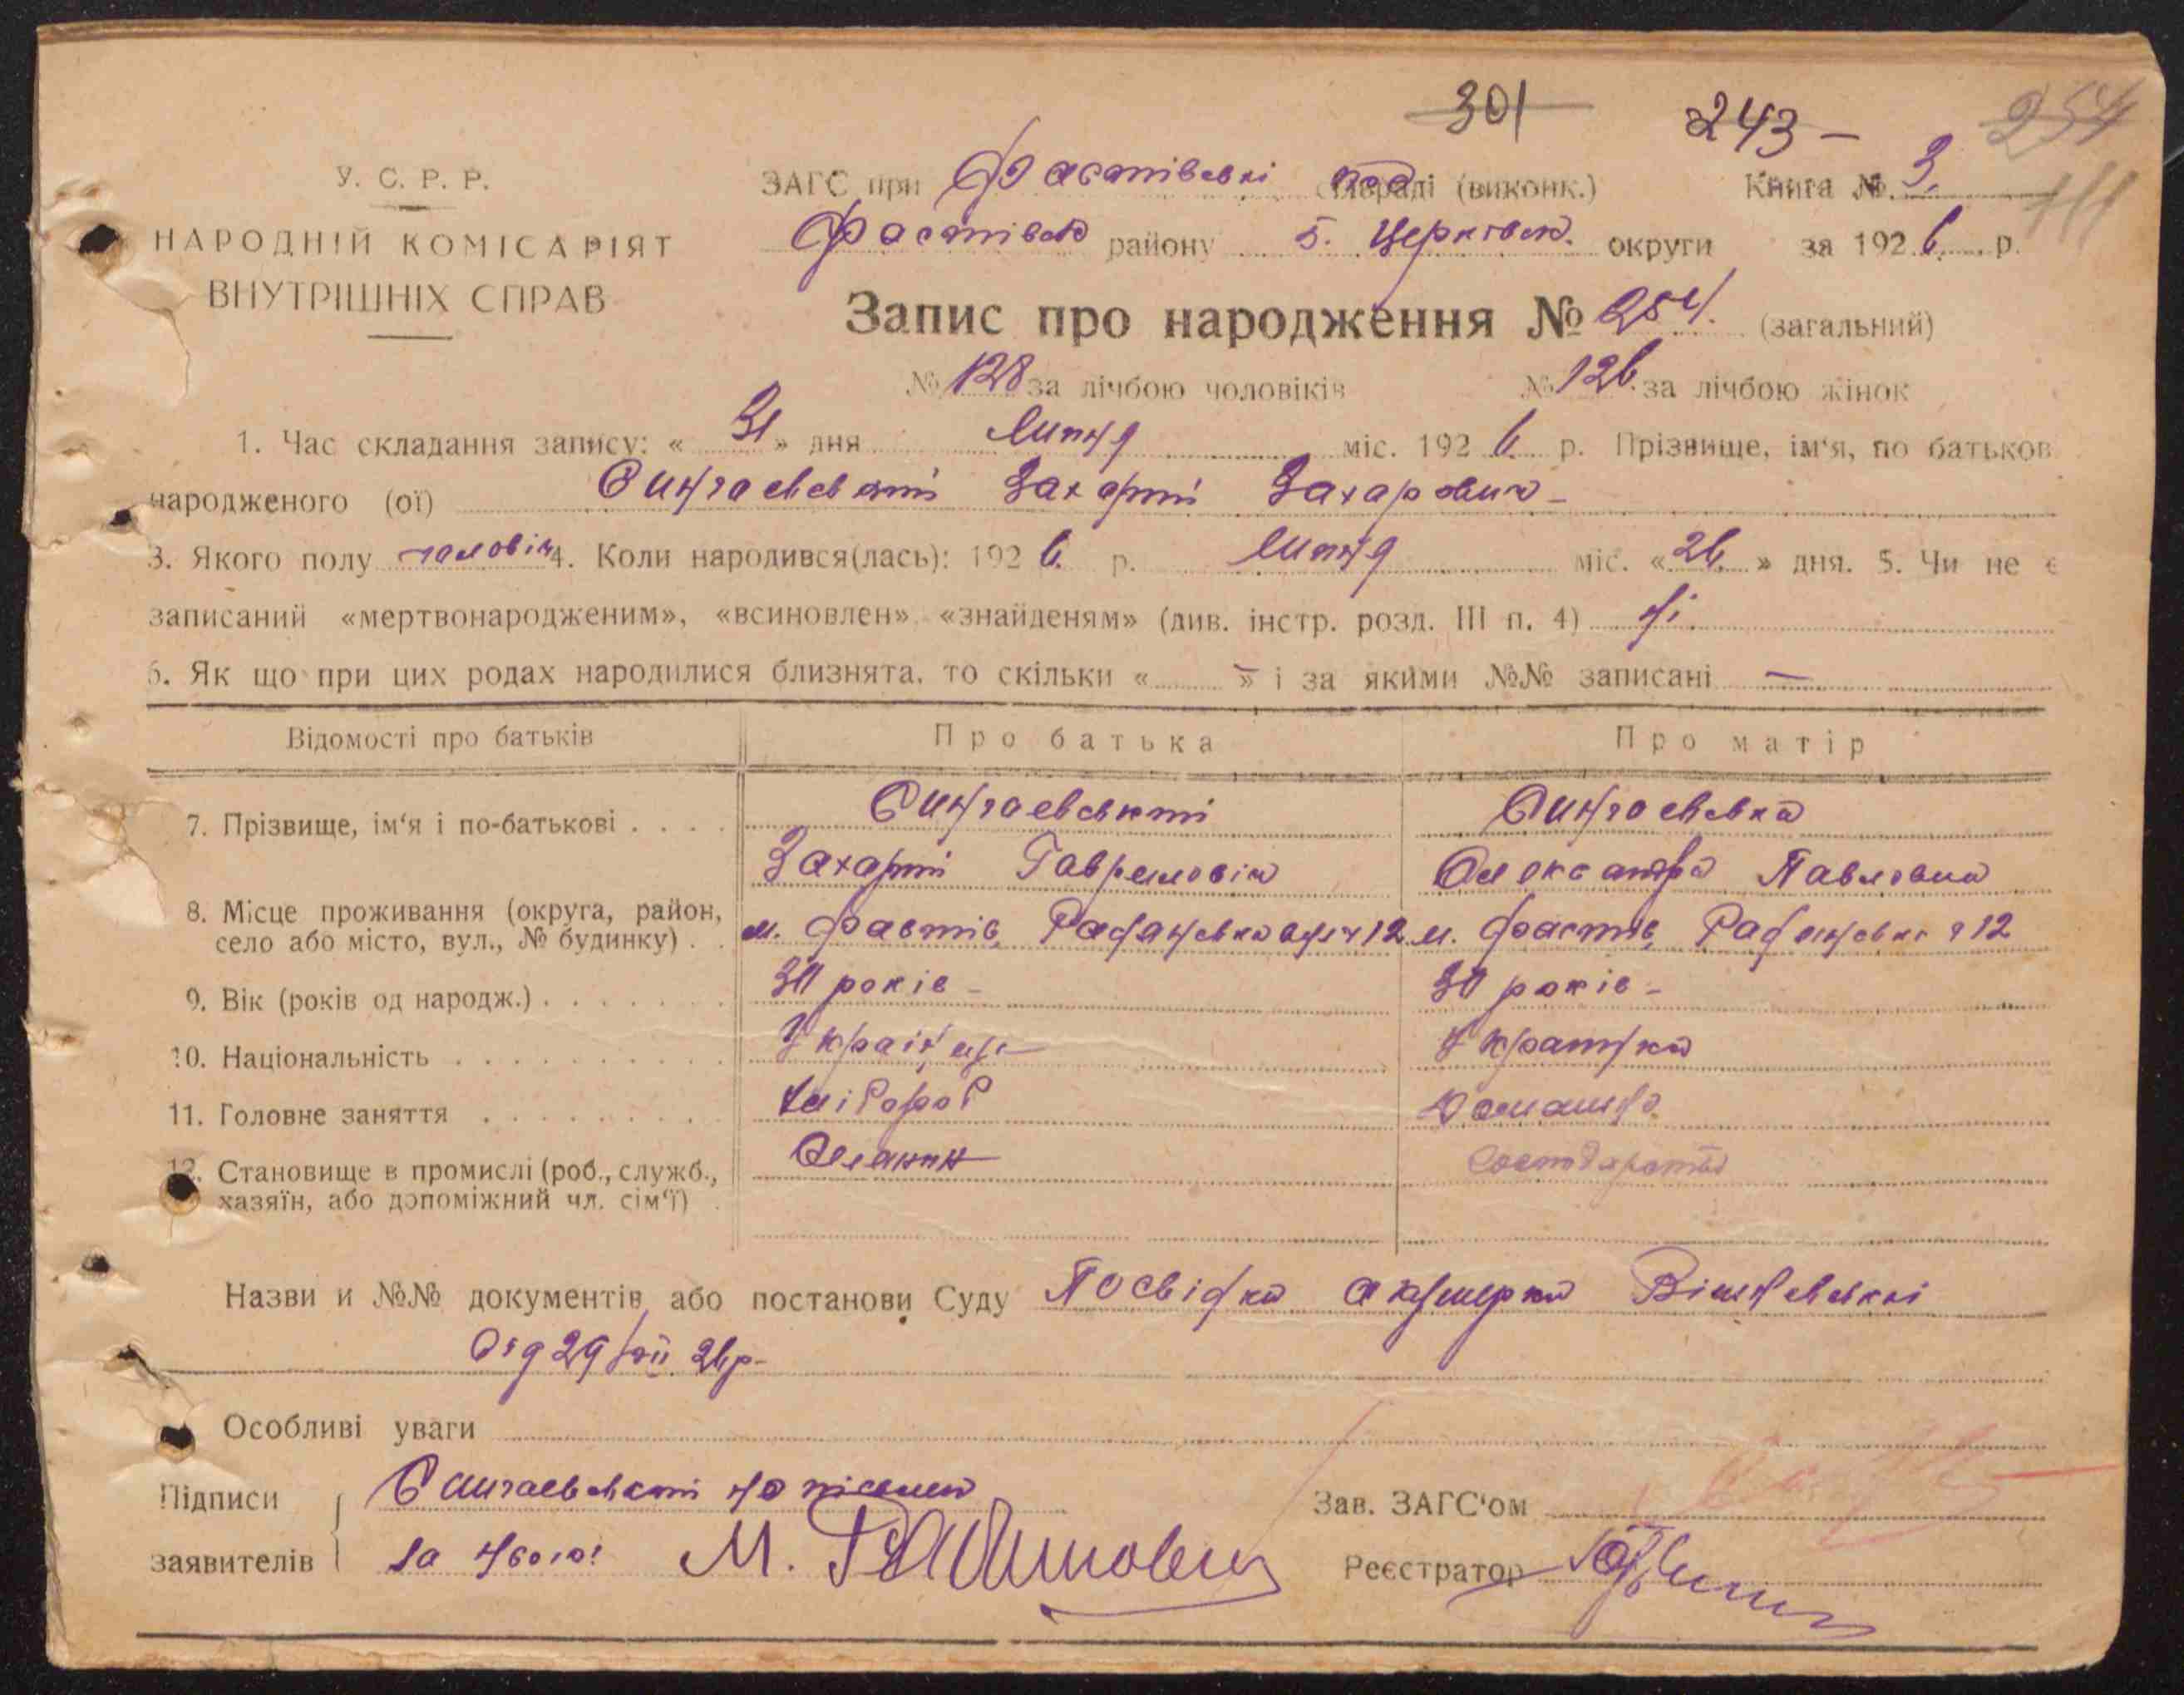 301 243 – 254
У. С. Р. Р.
ЗАГС при Фастівські рай сільраді (виконк.) Книга № 3.
111
НАРОДНІЙ КОМІСАРІЯТ
ВНУТРІШНІХ СПРАВ
Фастівськ району Б. Церківськ. округи за 1926 р.
Запис про народження № 254. (загальний)
№ 128 за лічбою чоловіків № 126. за лічбою жінок
1. Час складання запису: « 31 » дня липня міс. 1926 р. Прізвище, ім'я, по батьков
народженого (ої) Сингаевський Захарій Захарович –
3. Якого полу чоловіч 4. Коли народився(лась): 1926. р. липня міс. « 26. » дня. 5. Чи не є
записаний «мертвонародженим», «всиновлен», «знайденям» (див. інстр. розд. III п. 4) ні.
6. Як що при цих родах народилися близнята, то скільки « – » і за якими №№ записані –
Відомості про батьків Про батька Про матір
7. Прізвище, ім'я і по-батькові . . . . Сингаевський Сингаевська
Захарій Гаврилович Олександра Павловна
8. Місце проживання (округа, район,
село або місто, вул., № будинку) . . м. Фастів, 12 м. Фастів, 12
9. Вік (років од народж.) . . . . . . . 30 років – 30 років –
10. Національність . . . . . . . . . . . Українець Українка
11. Головне заняття . . . . . . . . . Хлібороб Домашнє
12. Становище в промислі (роб., служб.,
хазяїн, або допоміжний чл. сім'ї) . господарство
Назви и №№ документів або постанови Суду Посвідка акушерки
від 29/VII. 26р –
Особливі уваги
Підписи Сингаевський не письмен
заявителів за нього: М.
Зав. ЗАГС'ом
Реєстратор